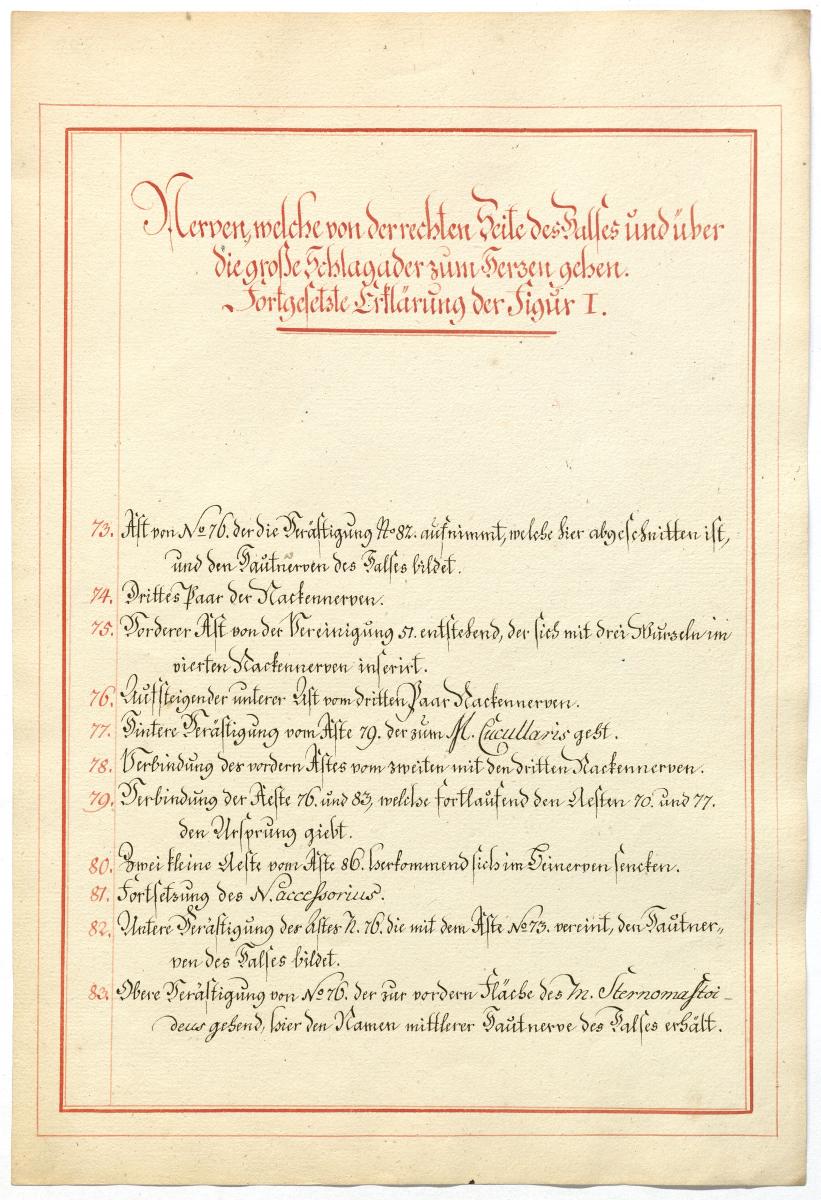 Nerven, welche von der rechten Seite des Halses und über
die große Schlagader zum Herzen gehen.
Fortgesetzte Erklärung der Figur I.
73. Ast von No 76. der die Verästigung No 82. aufnimmt, welche hier abgeschnitten ist,
und den Hautnerven des Halses bildet.
74. Drittes Paar der Nackennerven.
75. Vorderer Ast von der Vereinigung 51. entstehend, der sich mit drei Wurzeln im
vierten Nackennerven inserirt.
76. Aufsteigender unterer Ast vom dritten Paar Nackennerven.
77. Hintere Verästigung vom Aste 79. der zum M. Cucullaris geht.
78. Verbindung des vordern Astes vom zweiten mit den dritten Nackennerven.
79. Verbindung der Aeste 76. und 83, welche fortlaufend den Aesten 70. und 77.
den Ursprung giebt.
80. Zwei kleine Aeste vom Aste 86. herkommend sich im Beinerven sencken.
81. Fortsetzung des N. accessorius.
82. Untere Verästigung des Astes N. 76. die mit dem Aste No 73. vereint, den Hautner=
ven des Halses bildet.
83. Obere Verästigung von No 76. der zur vordern Fläche des M. Sternomastoi-
deus gehend, hier den Namen mittlerer Hautnerve des Halses erhält.